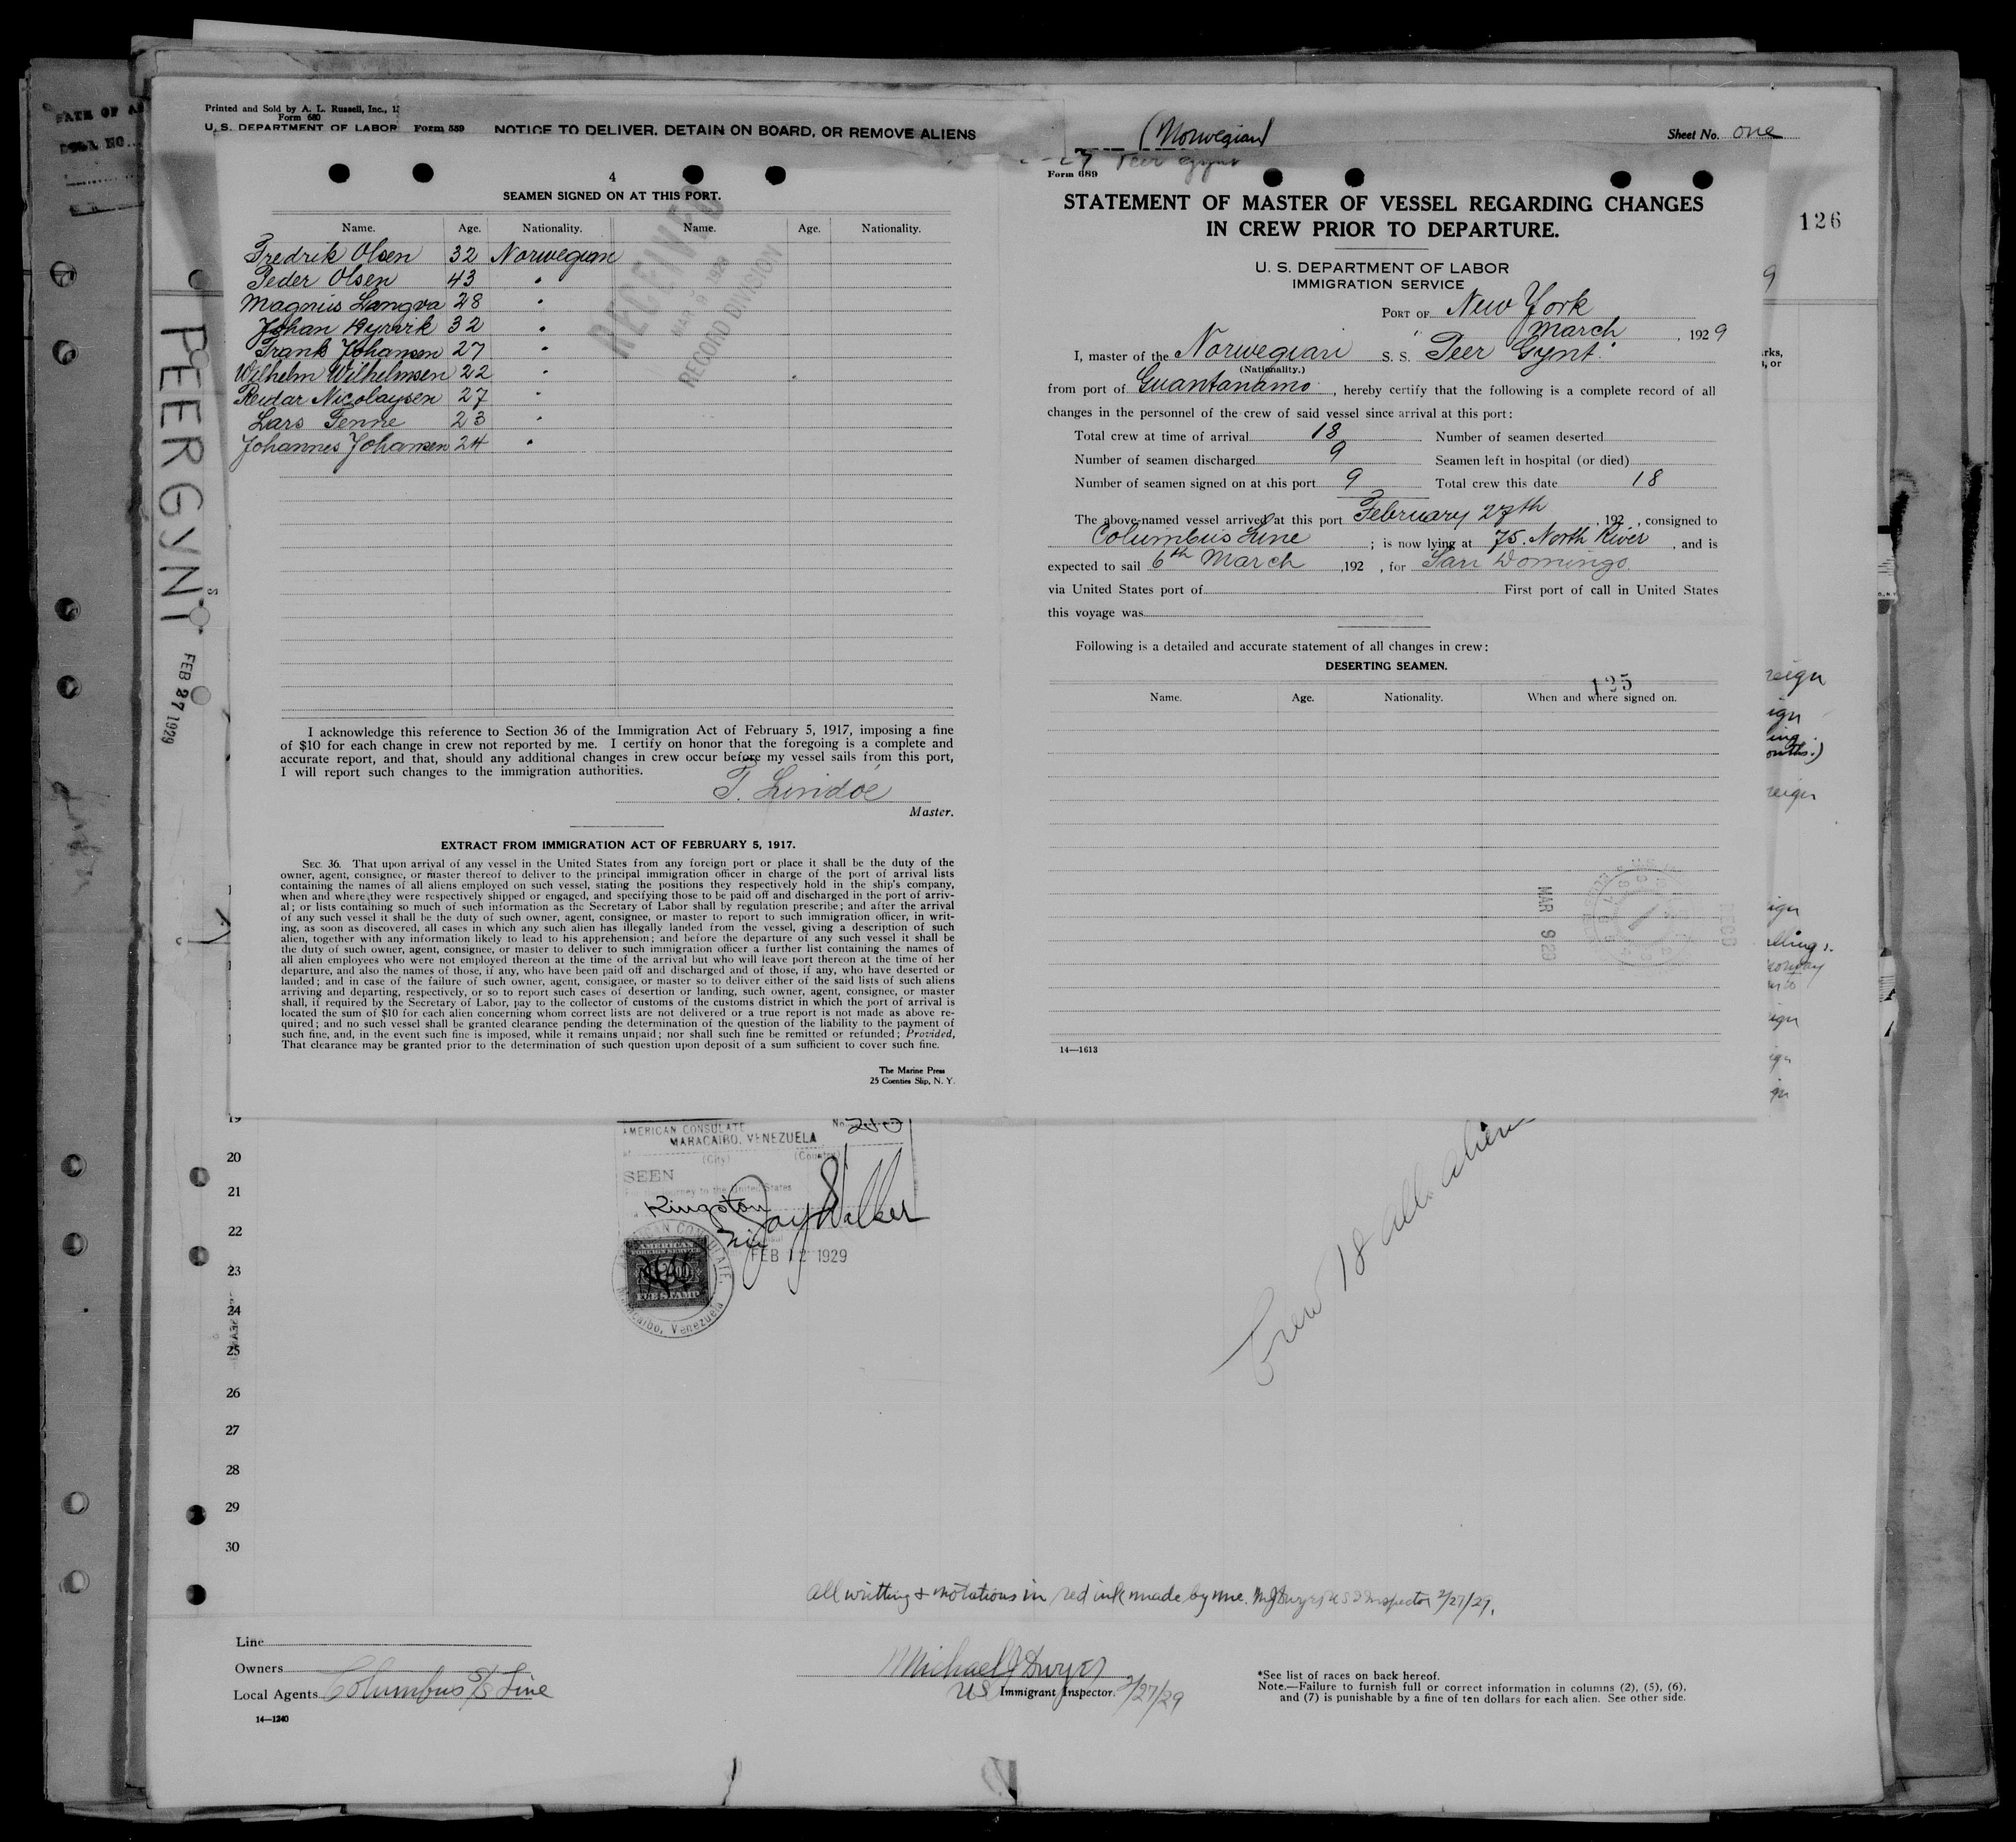 Printed and Sold by A. L. Russell, Inc.,
Form 680
U. S. DEPARTMENT OF LABOR Form 559 NOTICE TO DELIVER, DETAIN ON BOARD, OR REMOVE ALIENS
4
SEAMEN SIGNED ON AT THIS PORT.
Name. Age. Nationality. Name. Age. Nationality.
Fredrik Olsen 32 Norwegian
Peder Olsen 43 "
Magnus Langva 28 "
Johan 32 "
Frank Johansen 27 "
Wilhelm Wilhelmsen 22 "
Reidar Nicolaysen 27 "
Lars Tenne 23 "
Johannes Johansen 24 "
RECEIVED
MAR 9 1929
RECORD DIVISION
I acknowledge this reference to Section 36 of the Immigration Act of February 5, 1917, imposing a fine
of $10 for each change in crew not reported by me. I certify on honor that the foregoing is a complete and
accurate report, and that, should any additional changes in crew occur before my vessel sails from this port,
I will report such changes to the immigration authorities.
T. Lindöe
Master.
EXTRACT FROM IMMIGRATION ACT OF FEBRUARY 5, 1917.
SEC. 36. That upon arrival of any vessel in the United States from any foreign port or place it shall be the duty of the
owner, agent, consignee, or master thereof to deliver to the principal immigration officer in charge of the port of arrival lists
containing the names of all aliens employed on such vessel, stating the positions they respectively hold in the ship's company,
when and where they were respectively shipped or engaged, and specifying those to be paid off and discharged in the port of arriv-
al; or lists containing so much of such information as the Secretary of Labor shall by regulation prescribe; and after the arrival
of any such vessel it shall be the duty of such owner, agent, consignee, or master to report to such immigration officer, in writ-
ing, as soon as discovered, all cases in which any such alien has illegally landed from the vessel, giving a description of such
alien, together with any information likely to lead to his apprehension; and before the departure of any such vessel it shall be
the duty of such owner, agent, consignee, or master to deliver to such immigration officer a further list containing the names of
all alien employees who were not employed thereon at the time of the arrival but who will leave port thereon at the time of her
departure, and also the names of those, if any, who have been paid off and discharged and of those, if any, who have deserted or
landed; and in case of the failure of such owner, agent, consignee, or master so to deliver either of the said lists of such aliens
arriving and departing, respectively, or so to report such cases of desertion or landing, such owner, agent, consignee, or master
shall, if required by the Secretary of Labor, pay to the collector of customs of the customs district in which the port of arrival is
located the sum of $10 for each alien concerning whom correct lists are not delivered or a true report is not made as above re-
quired; and no such vessel shall be granted clearance pending the determination of the question of the liability to the payment of
such fine, and, in the event such fine is imposed, while it remains unpaid; nor shall such fine be remitted or refunded; Provided,
That clearance may be granted prior to the determination of such question upon deposit of a sum sufficient to cover such fine.
The Marine Press
25 Coenties Slip, N. Y.
PEER GYNT
FEB 27 1929
(Norwegian)
Sheet No. one
Peer Gynt
Form 689
STATEMENT OF MASTER OF VESSEL REGARDING CHANGES
IN CREW PRIOR TO DEPARTURE.
126
U. S. DEPARTMENT OF LABOR
IMMIGRATION SERVICE
PORT OF New York
March , 1929
I, master of the Norwegian S. S. "Peer Gynt"
(Nationality.)
from port of Guantanamo, hereby certify that the following is a complete record of all
changes in the personnel of the crew of said vessel since arrival at this port:
Total crew at time of arrival 18 Number of seamen deserted
Number of seamen discharged 9 Seamen left in hospital (or died)
Number of seamen signed on at this port 9 Total crew this date 18
The above-named vessel arrived at this port February 27th, 192 , consigned to
Columbus Line ; is now lying at 75. North River, and is
expected to sail 6th March , 192 , for San Domingo.
via United States port of First port of call in United States
this voyage was
Following is a detailed and accurate statement of all changes in crew:
DESERTING SEAMEN.
125
Name. Age. Nationality. When and where signed on.
MAR 9 929
14—1613
19
20
21
22
23
24
25
26
27
28
29
30
AMERICAN CONSULATE No.
MARACAIBO, VENEZUELA
(City) (Country)
SEEN
journey to the United States
Kingston
Jay Walker
FEB 12 1929
AMERICAN
FOREIGN SERVICE
FEE STAMP
AMERICAN CONSULATE,
Maracaibo, Venezuela
Crew 18 all aliens
All writting & notations in red ink made by me. M J Dwyer U S I Inspector 2/27/29.
Line
Owners
Local Agents Columbus S/S Line
14—1240
Michael J Dwyer
US Immigrant Inspector. 2/27/29
*See list of races on back hereof.
Note.—Failure to furnish full or correct information in columns (2), (5), (6),
and (7) is punishable by a fine of ten dollars for each alien. See other side.